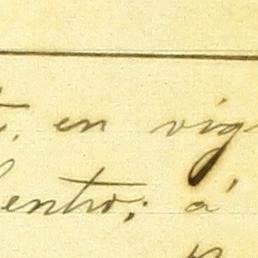 en vig
entro; á